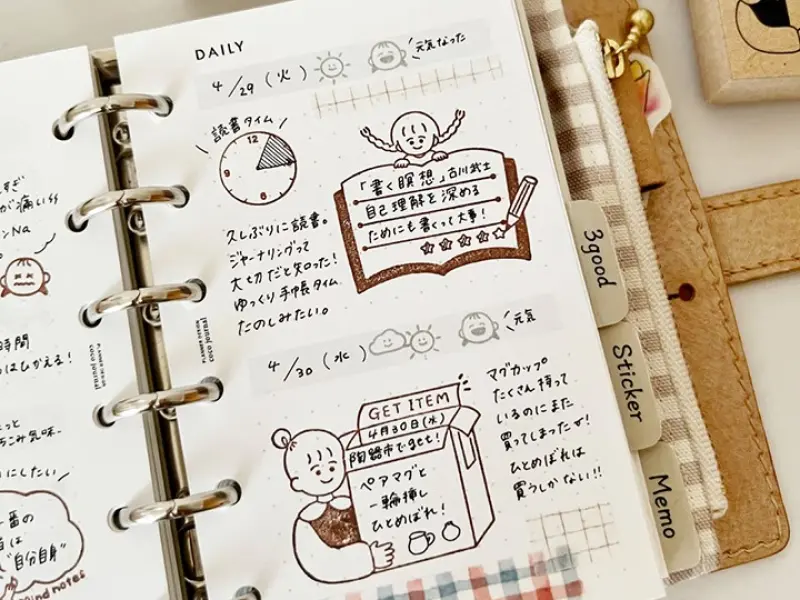 すぎ
が痛い
ンNa
時間
はひかえる!
こみ気味〜
にしたい
一番の
は
"自分自身"
mind notes
coco journal
DAILY
4/29 (火)
元気なった
読書タイム
12
3
6
9
「書く瞑想」古川武士
自己理解を深める
ためにも書くって大事!
久しぶりに読書。
ジャーナリングって
大切だと知った!
ゆっくり手帳タイム
たのしみたい。
4/30 (水)
元気
GET ITEM
4月30日(水)
陶器市でget!
ペアマグと
一輪挿し
ひとめぼれ!
マグカップ
たくさん持って
いるのにまた
買ってしまったが!
ひとめぼれは
買うしかない!!
3good
Sticker
Memo